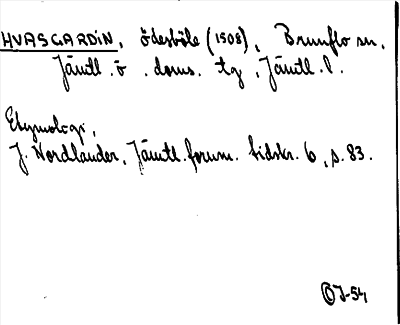 HVASGARDIN, ödesböle (1508), Brunflo sn.
Jämtl. ö. doms. tg, Jämtl. l.
Etymologi,
J. Nordlander, Jämtl. fornm. tidskr. 6, s. 83.
ÖJ-54